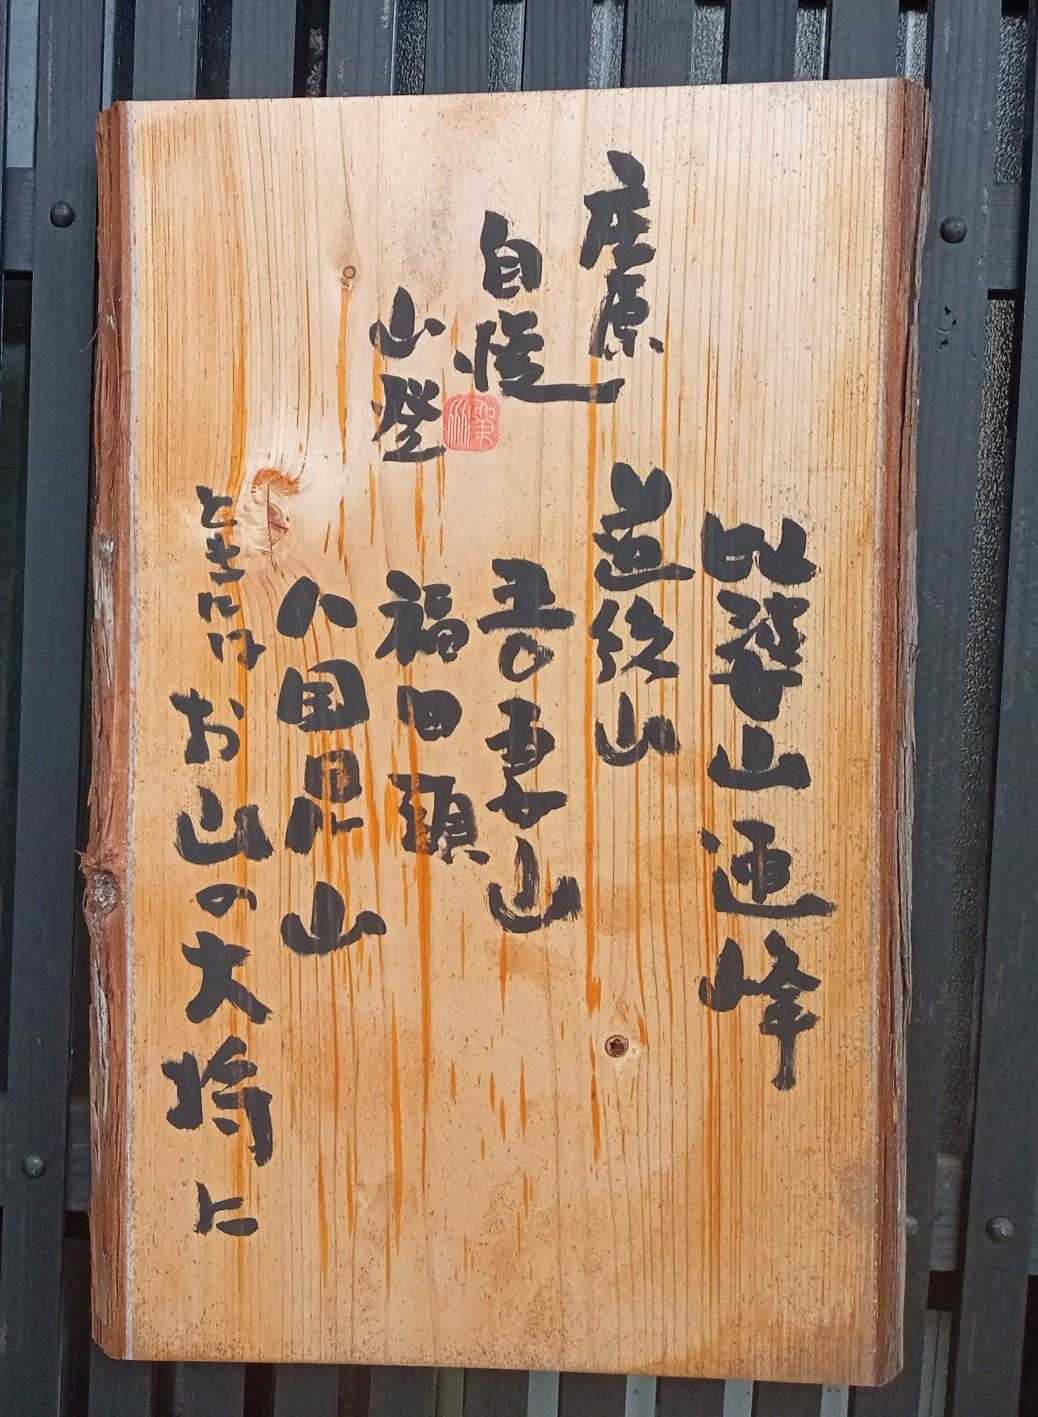 庄原
自慢
山登
比婆山連峰
道後山
吾妻山
福田頭
八国見山
ときにはお山の大将に